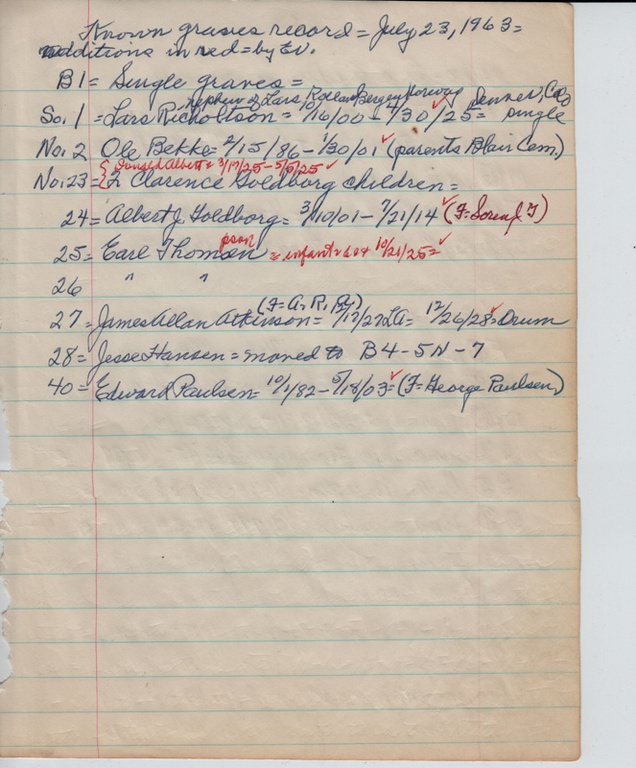 Known graves record = July 23, 1963 =
additions in red = by Ev.
B1 = Single graves =
nephew of Lars, Bergen Norway Denver, Colo
So. 1 = Lars Nicholtson = 7/16/00 - 4/30/25 = single
No. 2 Ole Bekke = 2/15/86 - 1/30/01 ✓ (parents Blair Cem.)
{ Donald Albert = 3/17/25 - 5/5/25 ✓
No. 23 = { 2 Clarence Goldborg children =
24 = Albert J. Goldborg = 3/10/01 - 7/21/14 ✓ (F = Soren J G)
25 = Earl Thomsen pson = infant = 10/21/25 = ✓
26 " "
(F = A. R. )
27 = James Allan Atkinson = 7/17/27 LA = 12/26/28 ✓ = Drum
28 = Jesse Hansen = moved to B4 - 5N - 7
40 = Edward Paulsen = 10/1/82 - 5/18/03 ✓ = (F = George Paulsen)